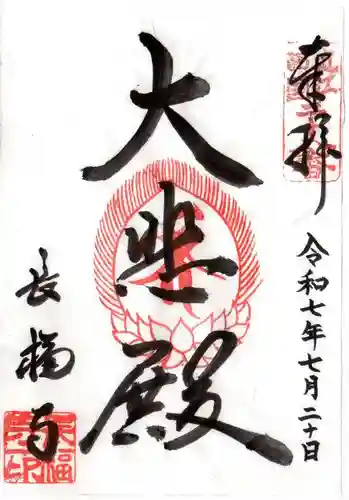 奉拝
令和七年七月二十日
大悲殿
長福寺